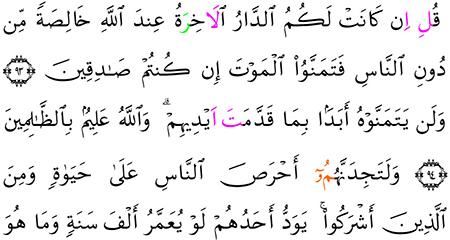 قُلِ اِن كَانَتْ لَكُمُ الدَّارُ الَاخِرَةُ عِندَ اَللَّهِ خَالِصَةٗ مِّن
دُونِ اِلنَّاسِ فَتَمَنَّوُاْ الْمَوْتَ إِن كُنتُمْ صَٰدِقِينَ ۝٩٣
وَلَن يَتَمَنَّوْهُ أَبَدَۢا بِمَا قَدَّمَتَ اَيْدِيهِمْۖ وَاللَّهُ عَلِيمُۢ بِالظَّٰلِمِينَ
۝٩٤ وَلَتَجِدَنَّهُمُۥٓ أَحْرَصَ اَلنَّاسِ عَلَىٰ حَيَوٰةٖ وَمِنَ
اَلَّذِينَ أَشْرَكُواْۖ يَوَدُّ أَحَدُهُمْ لَوْ يُعَمَّرُ أَلْفَ سَنَةٖ وَمَا هُوَ